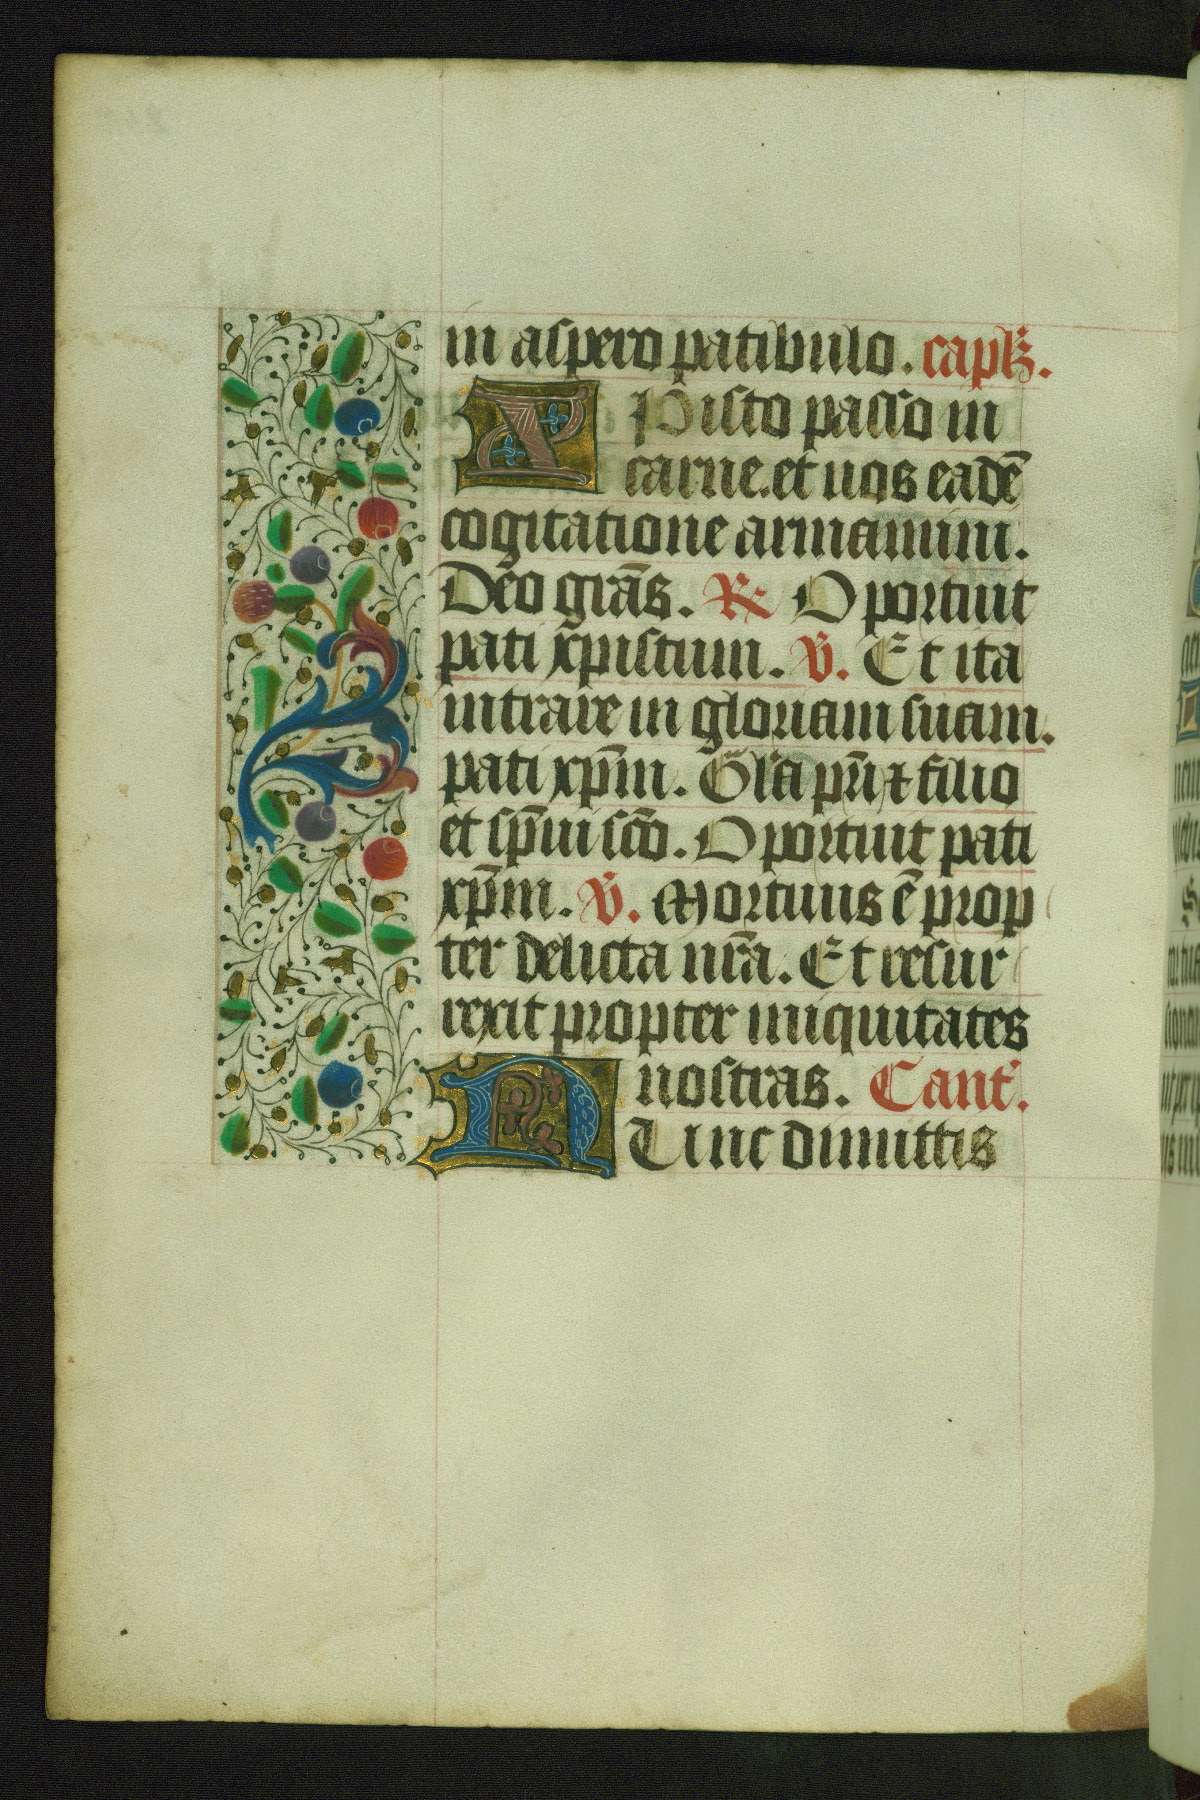 in aspero patibulo. capl̄.
XPisto passo in
carne. et uos eadē
cogitatione armamini.
Deo grās. R̸ Oportuit
pati xpistum. V̄. Et ita
intrare in gloriam suam.
pati xp̄m. Gl̄a pr̄i ⁊ filio
et sp̄ui sc̄o. Oportuit pati
xp̄m. V̄. Mortuus ē prop
ter delicta nr̄a. Et resur
rexit propter iniquitates
nostras. Cant̄.
NUnc dimittis